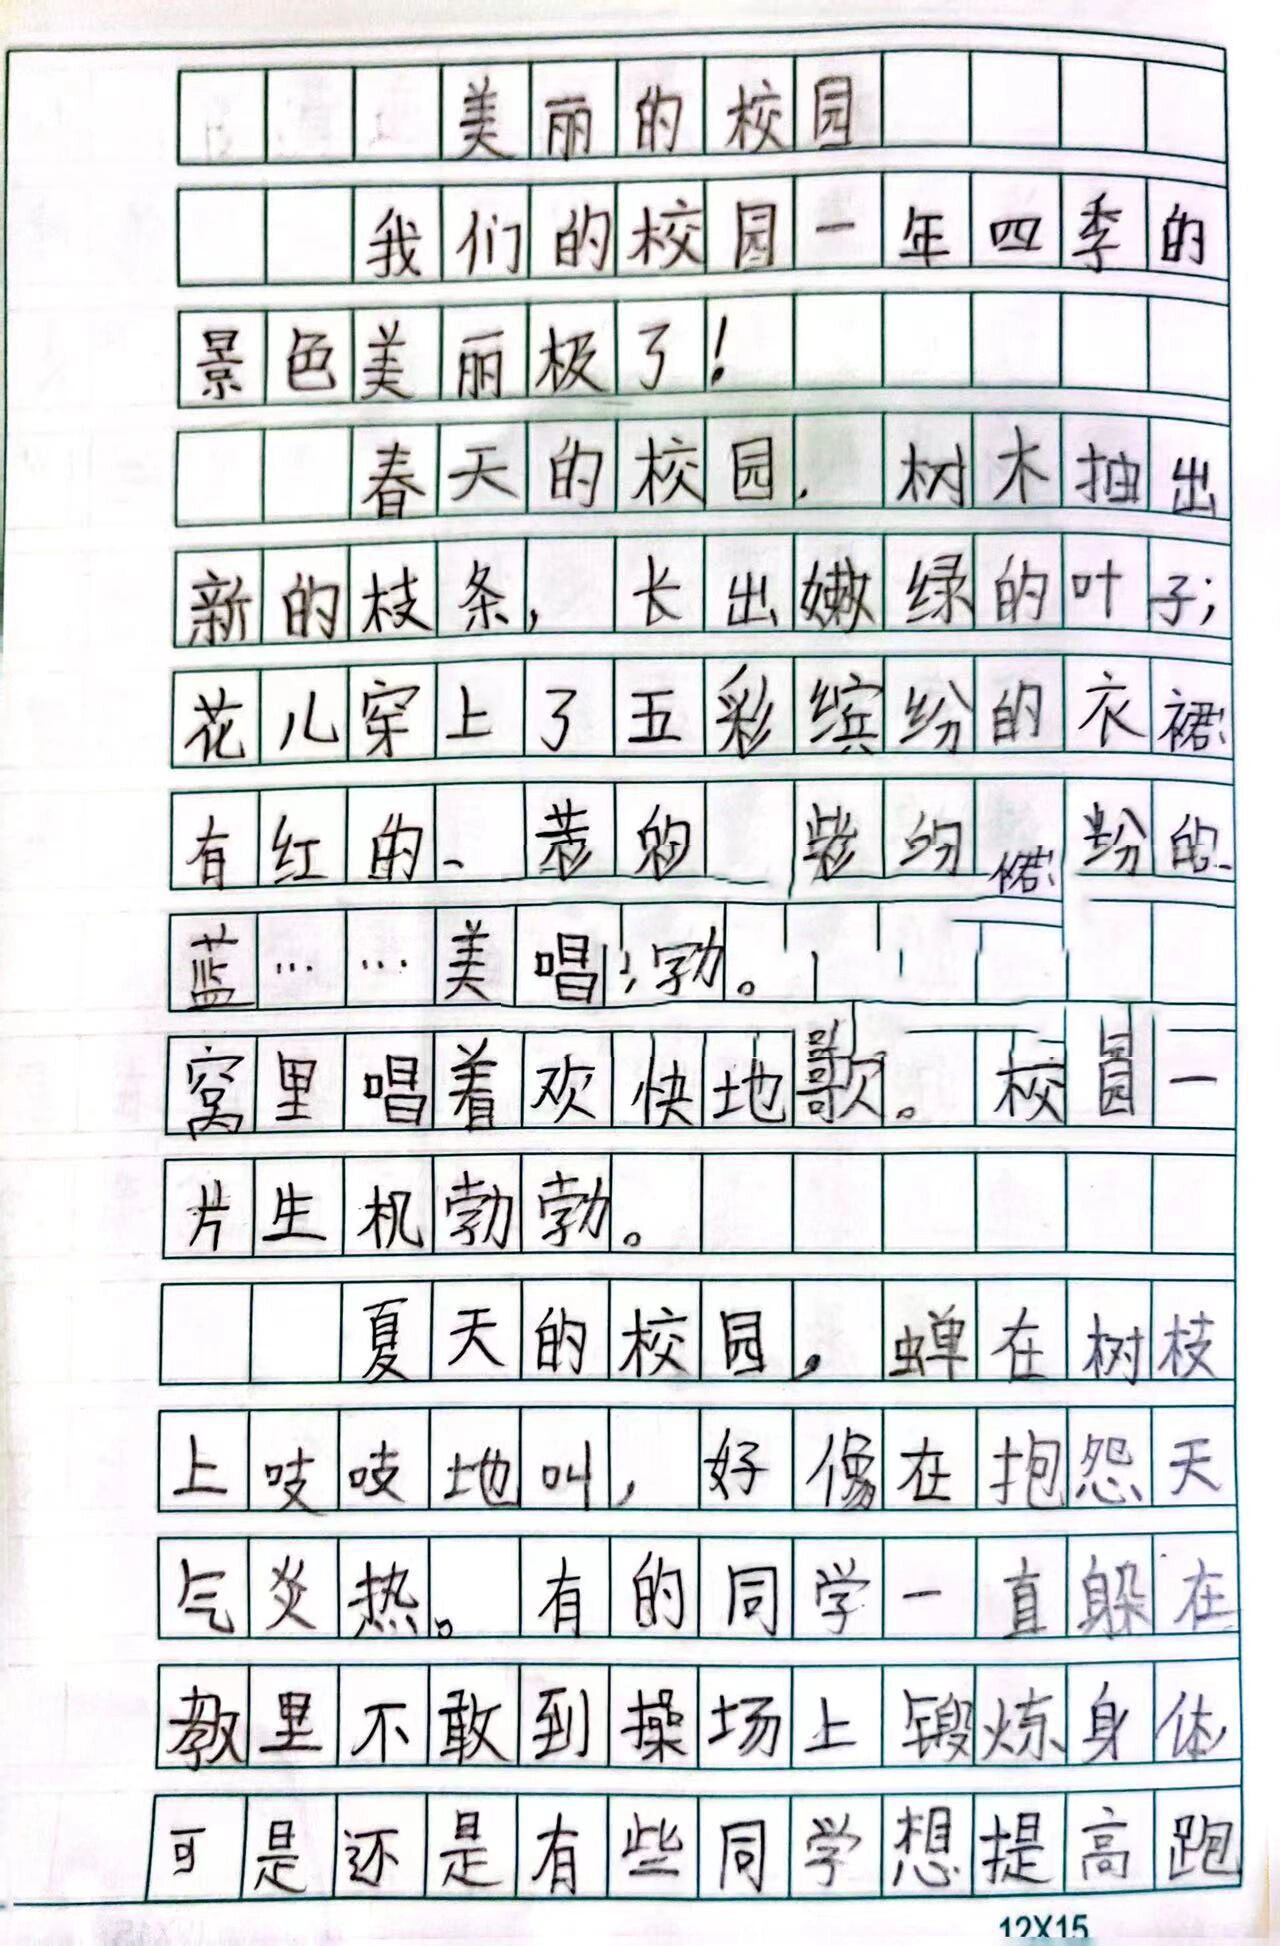 美丽的校园
我们的校园一年四季的
景色美丽极了!
春天的校园,树木抽出
新的枝条,长出嫩绿的叶子;
花儿穿上了五彩缤纷的衣裙
有红的、的 的
蓝……美唱 勃。
窝里唱着欢快地歌。校园一
片生机勃勃。
夏天的校园,蝉在树枝
上吱吱地叫,好像在抱怨天
气炎热。有的同学一直躲在
教里不敢到操场上锻炼身体,
可是还是有些同学想提高跑
12X15